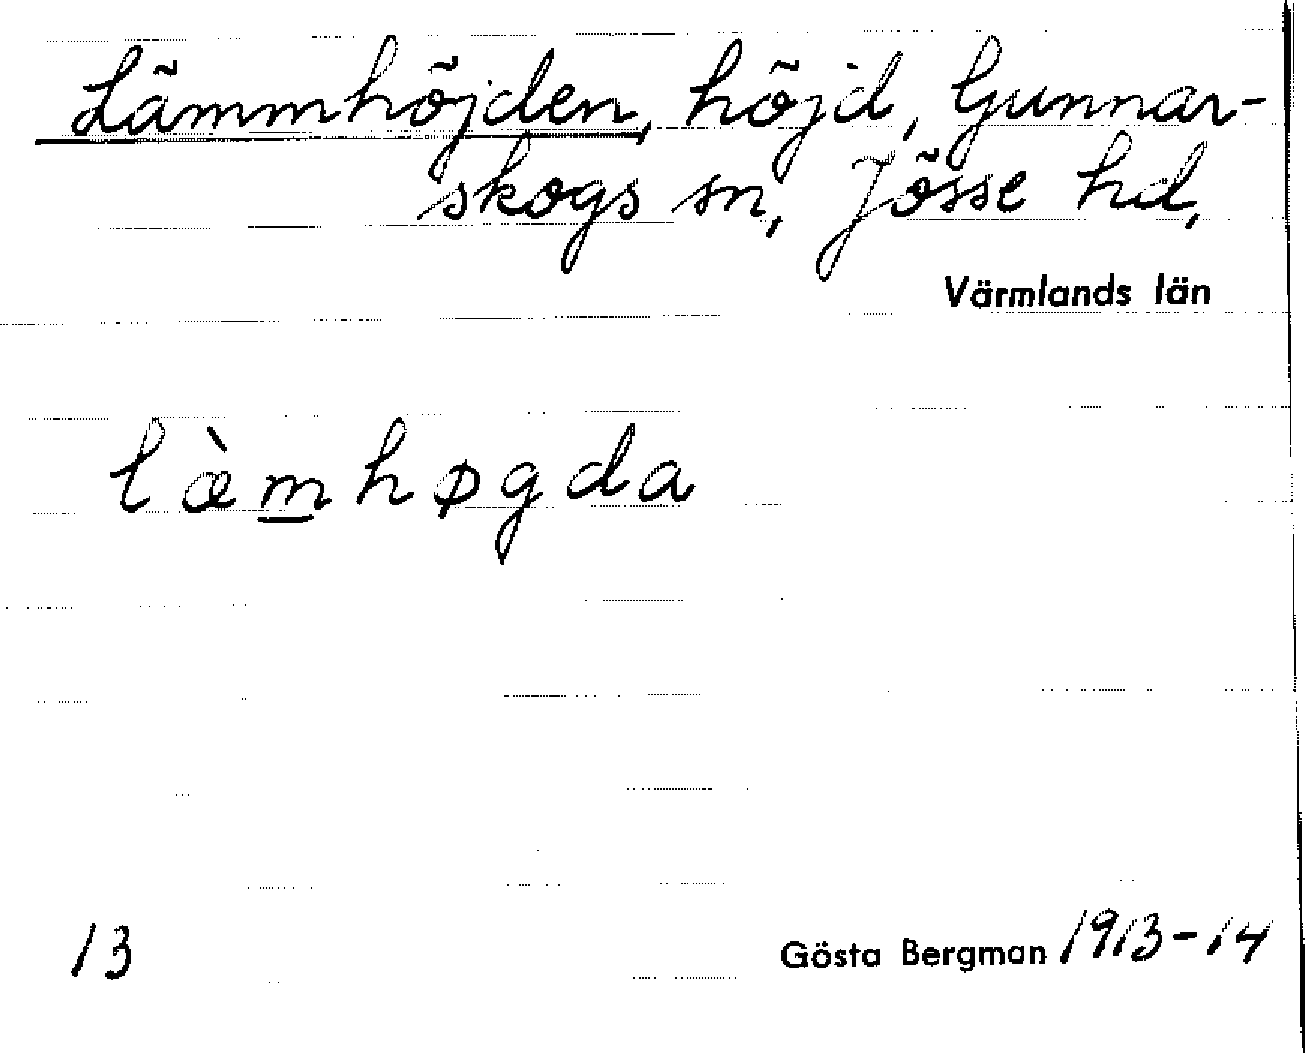 Lämmhöjden, höjd, Gunnar-
skogs sn, Jösse hd,
Värmlands län
læ̀m̲høgda
13
Gösta Bergman 1913-14